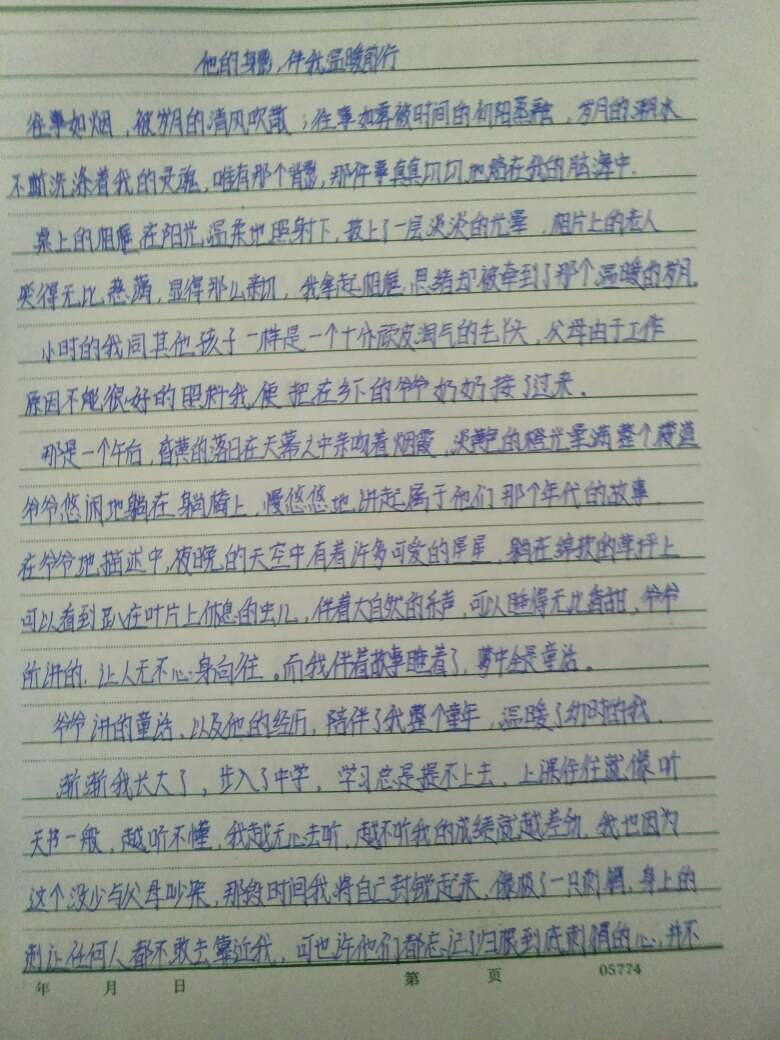 他的身影,伴我温暖前行
往事如烟,被岁月的清风吹散;往事如雾被时间的初阳蒸融,岁月的潮水
不断洗涤着我的灵魂,唯有那个背影,那件事真真切切地烙在我的脑海中.
桌上的相框在阳光温柔地照射下,披上了一层淡淡的光晕,相片上的老人
笑得无比慈蔼,显得那么亲切,我拿起相框,思绪却被牵到了那个温暖的岁月.
小时的我同其他孩子一样是一个十分顽皮淘气的丫头,父母由于工作
原因不能很好的照料我,便把在乡下的爷爷奶奶接了过来。
那是一个午后,昏黄的落日在天幕之中亲吻着烟霞,淡黄色的橙光晕满整个楼道
爷爷悠闲地躺在躺椅上,慢悠悠地讲起属于他们那个年代的故事.
在爷爷地描述中,夜晚的天空中有着许多可爱的星星,躺在绵软的草坪上
可以看到趴在叶片上休息的虫儿,伴着大自然的乐声,可以睡得无比香甜,爷爷
所讲的,让人无不心身向往。而我伴着故事睡着了,梦中全是童话。
爷爷讲的童话、以及他的经历,陪伴了我整个童年,温暖了幼时的我.
渐渐我长大了,步入了中学,学习总是提不上去,上课往往就像听
天书一般,越听不懂,我越无心去听,越不听我的成绩就越差劲,我也因为
这个没少与父母吵架,那段时间我将自己封锁起来,像极了一只刺猬,身上的
刺让任何人都不敢去靠近我,可也许他们都忘记了归根到底刺猬的心,并不
年 月 日 第 页 05774